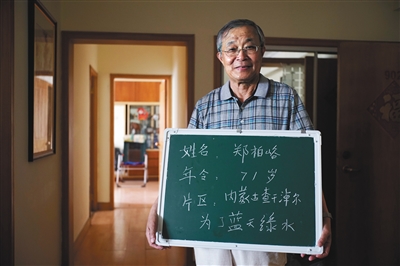 姓名：郑柏峪
年令：71岁
片区：内蒙古查干淖尔
为了蓝天绿水